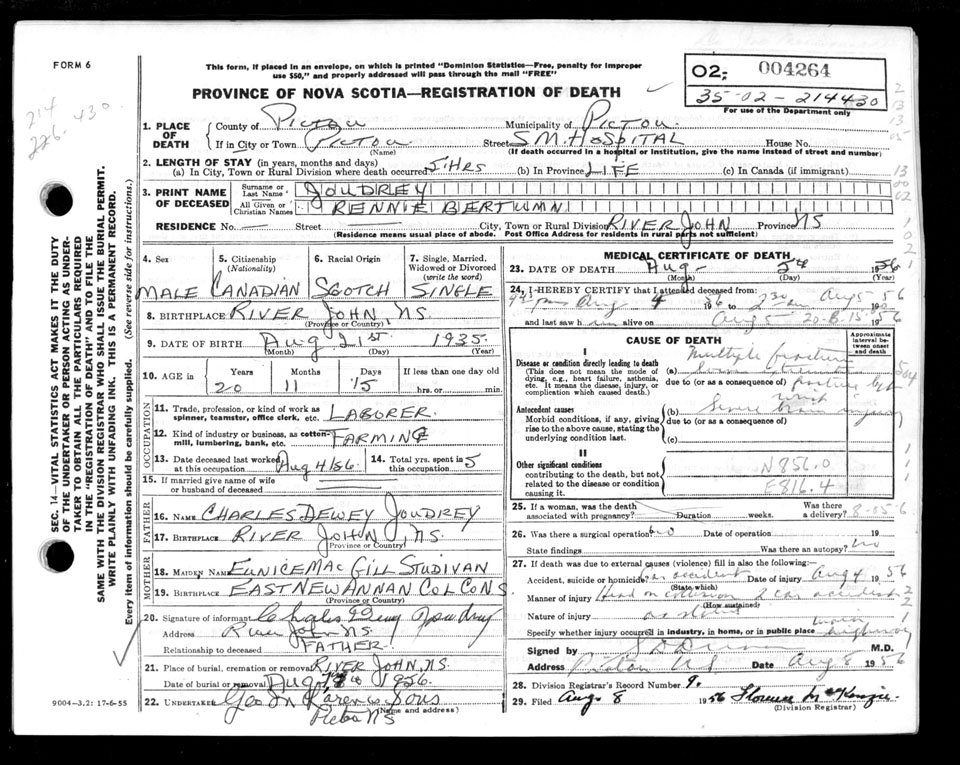 FORM 6
This form, if placed in an envelope, on which is printed "Dominion Statistics—Free, penalty for improper
use $50," and properly addressed will pass through the mail "FREE"
02; 004264
35-02-214430
For use of the Department only
214 430
226
PROVINCE OF NOVA SCOTIA—REGISTRATION OF DEATH
1. PLACE OF DEATH { County of PICTOU Municipality of PICTOU
If in City or Town PICTOU (Name) Street S M HOSPITAL House No.
(If death occurred in a hospital or institution, give the name instead of street and number)
2. LENGTH OF STAY (in years, months and days)
(a) In City, Town or Rural Division where death occurred 5 HRS (b) In Province LIFE (c) In Canada (if immigrant)
3. PRINT NAME OF DECEASED { Surname or Last Name JOUDREY
All Given or Christian Names RENNIE BERTUMN
RESIDENCE No. — Street — City, Town or Rural Division RIVER JOHN Province NS
(Residence means usual place of abode. Post Office Address for residents in rural parts not sufficient)
4. Sex 5. Citizenship (Nationality) 6. Racial Origin 7. Single, Married, Widowed or Divorced (write the word)
MALE CANADIAN SCOTCH SINGLE
8. BIRTHPLACE RIVER JOHN, NS.
(Province or Country)
9. DATE OF BIRTH Aug 21st. 1935.
(Month) (Day) (Year)
10. AGE in { Years Months Days If less than one day old
20 11 15 hrs. or min.
OCCUPATION
11. Trade, profession, or kind of work as spinner, teamster, office clerk, etc. LABORER.
12. Kind of industry or business, as cotton-mill, lumbering, bank, etc. FARMING
13. Date deceased last worked at this occupation Aug 4/56 14. Total yrs. spent in this occupation 5
15. If married give name of wife or husband of deceased
FATHER
16. NAME CHARLES DEWEY JOUDREY
17. BIRTHPLACE RIVER JOHN, NS.
(Province or Country)
MOTHER
18. MAIDEN NAME EUNICE MAC GILL STUDIVAN
19. BIRTHPLACE EAST NEW ANNAN COL CO NS
(Province or Country)
20. Signature of informant Charles Dewy Joudrey
Address River John NS.
Relationship to deceased FATHER
21. Place of burial, cremation or removal RIVER JOHN, NS.
Date of burial or removal Aug 1956.
22. UNDERTAKER Geo Sons
NS
(Name and address)
MEDICAL CERTIFICATE OF DEATH
23. DATE OF DEATH Aug- 5th 1956
(Month) (Day) (Year)
24. I HEREBY CERTIFY that I attended deceased from:
Aug 4 56 to 2 30 am Aug 5 56
and last saw h alive on Aug 5 1956
CAUSE OF DEATH
Approximate interval between onset and death
I
Disease or condition directly leading to death
(This does not mean the mode of dying, e.g., heart failure, asthenia, etc. It means the disease, injury, or complication which caused death.)
(a) Multiple fracture
due to (or as a consequence of)
Antecedent causes
Morbid conditions, if any, giving rise to the above cause, stating the underlying condition last.
(b) Severe brain injury
due to (or as a consequence of)
(c)
II
Other significant conditions
contributing to the death, but not related to the disease or condition causing it.
N 856.0
E 816.4
25. If a woman, was the death associated with pregnancy? Duration weeks. Was there a delivery?
26. Was there a surgical operation? no Date of operation 19
State findings Was there an autopsy? no
27. If death was due to external causes (violence) fill in also the following:—
Accident, suicide or homicide? accident Date of injury Aug 4 1956
(State which)
Manner of injury Head on collision 2 car accident
(How sustained)
Nature of injury as stated
Specify whether injury occurred in industry, in home, or in public place highway
Signed by M.D.
Address Pictou NS Date Aug 8 1956
28. Division Registrar's Record Number 9.
29. Filed Aug 8 1956 Florence McKenzie
(Division Registrar)
SEC. 14—VITAL STATISTICS ACT MAKES IT THE DUTY
OF THE UNDERTAKER OR PERSON ACTING AS UNDER-
TAKER TO OBTAIN ALL THE PARTICULARS REQUIRED
IN THE "REGISTRATION OF DEATH" AND TO FILE THE
SAME WITH THE DIVISION REGISTRAR WHO SHALL ISSUE THE BURIAL PERMIT.
WRITE PLAINLY WITH UNFADING INK. THIS IS A PERMANENT RECORD.
Every item of information should be carefully supplied. (See reverse side for instructions.)
9004-3.2: 17-6-55